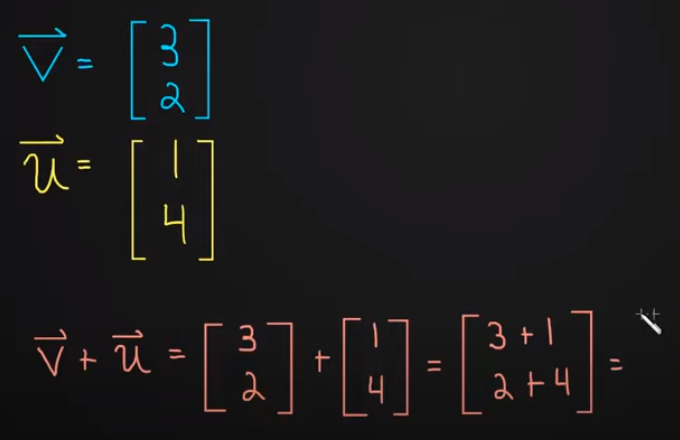 v⃗ = [3
2]
u⃗ = [1
4]
v⃗ + u⃗ = [3 2] + [1 4] = [3 + 1 2 + 4] =